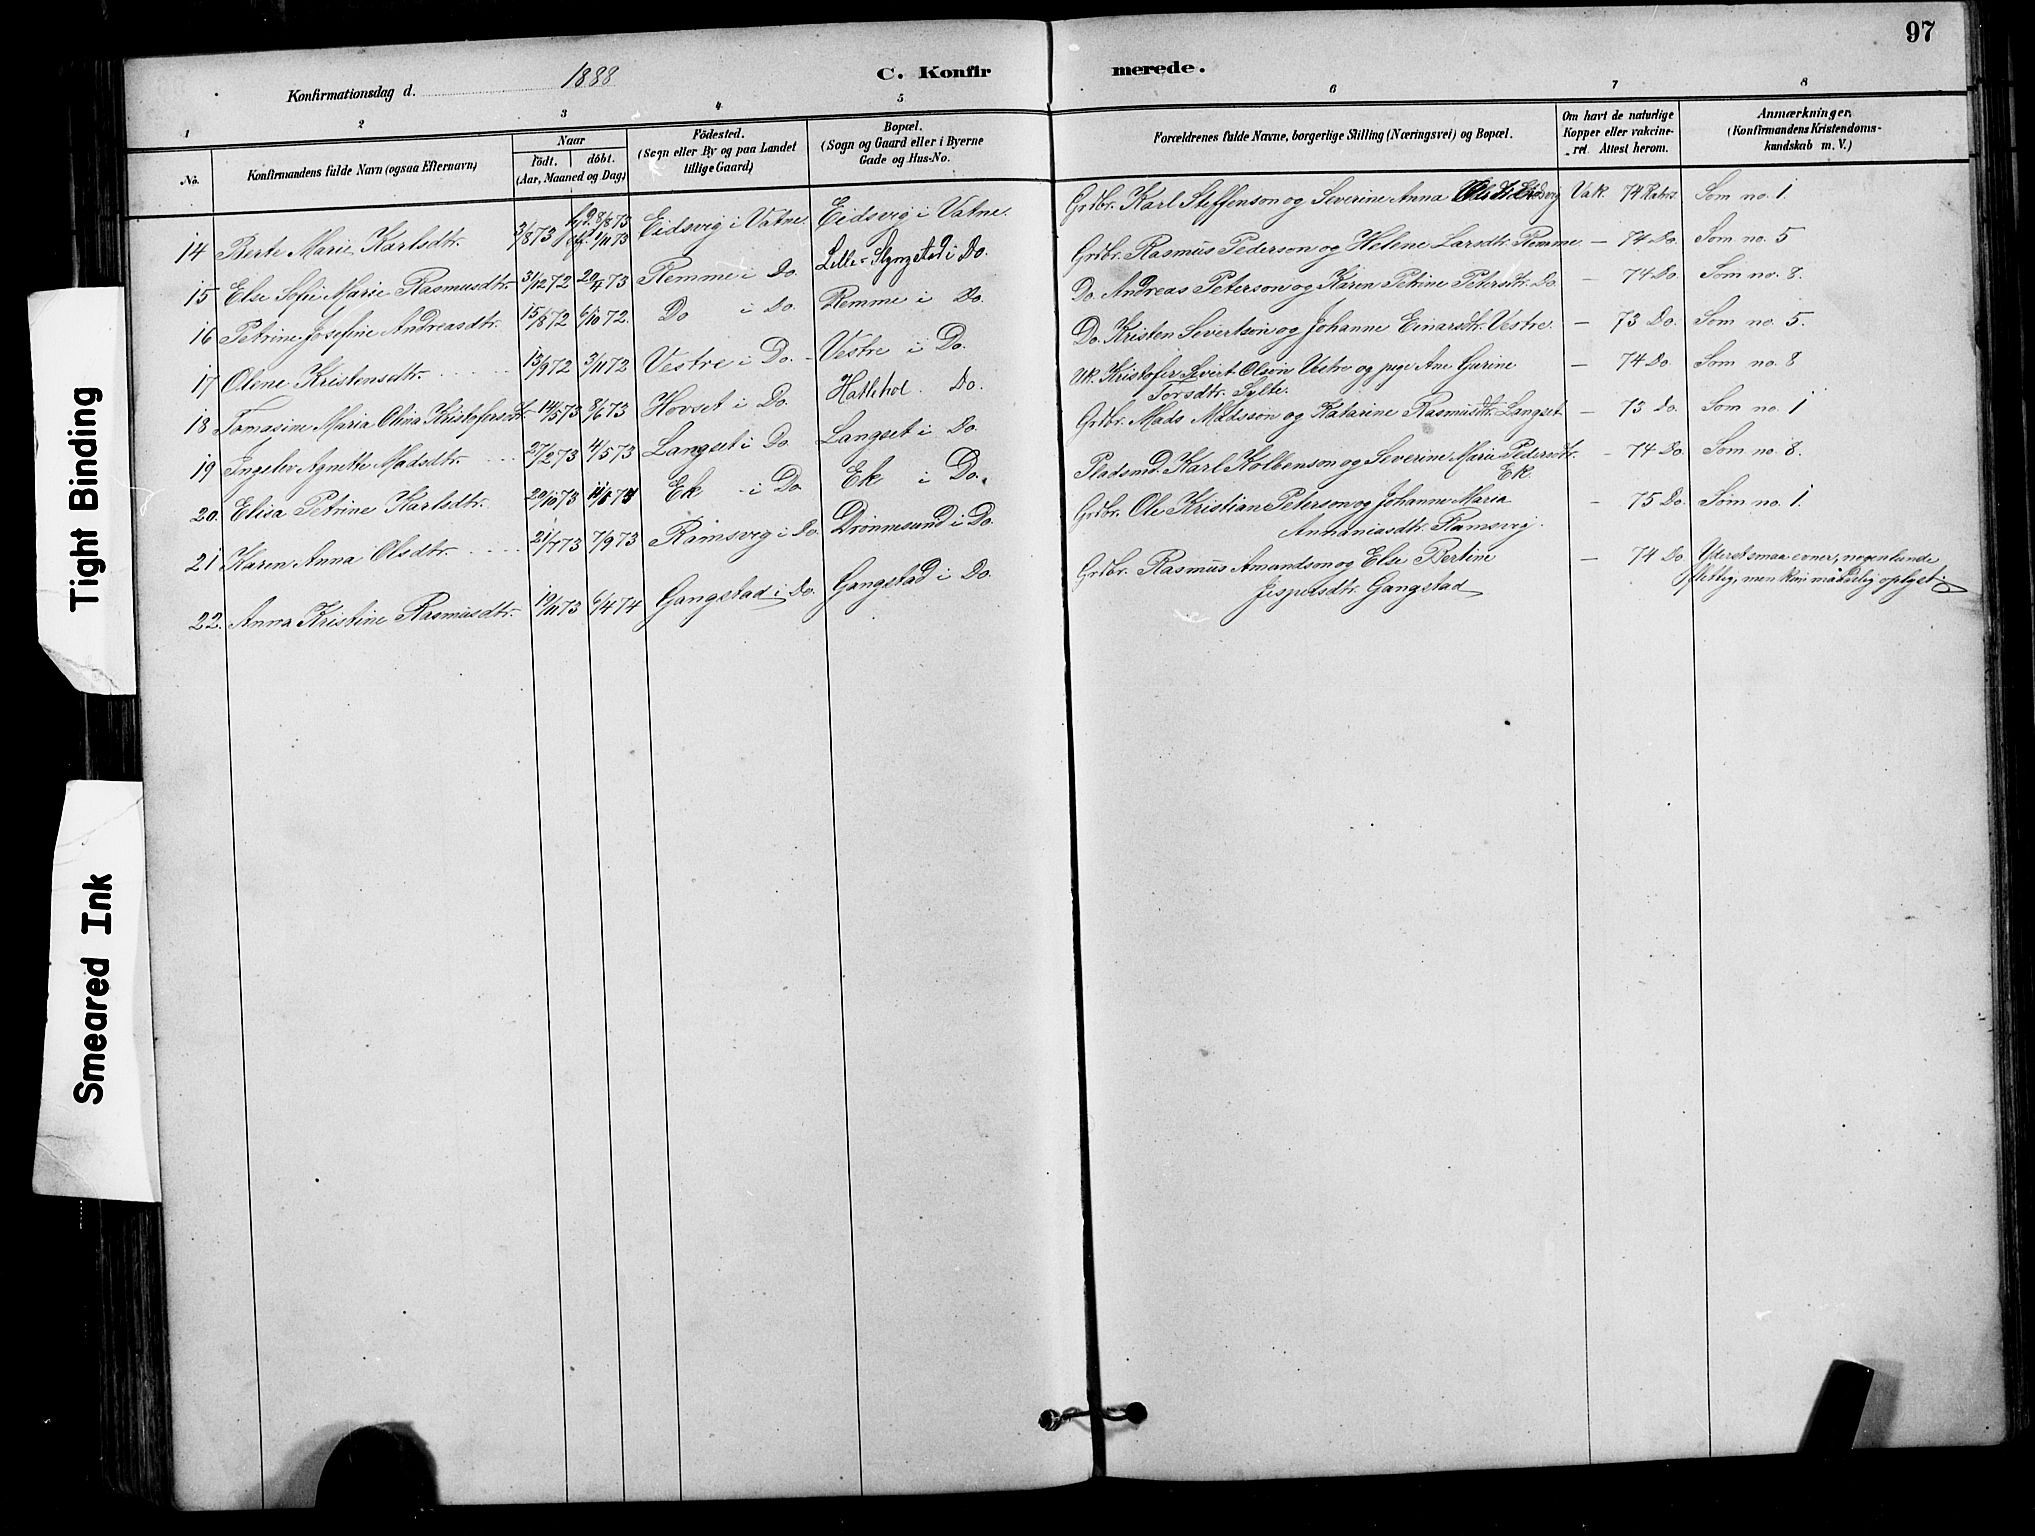 97
Konfirmationsdag d. 1888
C. Konfirmerede.
1 2 3 4 5 6 7 8
No.
Konfirmandens fulde Navn (ogsaa Efternavn)
Naar
født. døbt.
(Aar, Maaned og Dag)
Födested.
(Sogn eller By og paa Landet
tillige Gaard)
Bopæl.
(Sogn og Gaard eller i Byerne
Gade og Hus-No.
Forældrenes fulde Navne, borgerlige Stilling (Næringsvei) og Bopæl.
Om havt de naturlige
Kopper eller vakcine-
ret. Attest herom.
Anmærkninger.
(Konfirmandens Kristendoms-
kundskab m. V.)
14 Berte Marie Karlsdtr. 3/8 73 8/8 73 Eidsvig i Vatne. Eidsvig i Vatne. Grdbr. Karl Steffenson og Severine Anna Vak. 74 Som no. 1.
9/11 73
15 Else Sofie Marie Rasmusdtr. 31/12 72 20/4 73 Remme i Do. Lille-Slyngstad i Do. Grdbr. Rasmus Pederson og Helene Larsdtr. Remme – 74 Do. Som no. 5
16 Petrine Josefine Andreasdtr. 15/8 72 6/10 72. Do i Do. Remme i Do. Do. Andreas Peterson og Karen Petrine Petersdtr. Do. – 74 Do. Som no. 8.
17 Olene Kristensdtr. 13/9 72 3/11 72 Vestre i Do. Vestre i Do. Do. Kristen Severtson og Johanne Einarsdtr. Vestre. – 73 Do. Som no. 5.
18 Tomasine Maria Olina Kristofersdtr. 14/5 73 8/6 73 Hovset i Do. Hatlehol Do. Uk. Kristofer Sivert Olson Vestre og pige Ane Gurine – 74 Do. Som no. 8
Torsdtr. Sylte.
19 Ingelev Agnette Madsdtr. 27/2 73 4/5 73 Langset i Do. Langset i Do. Grdbr. Mads Madsson og Katarine Rasmusdtr. Langset – 73 Do. Som no. 1
20. Elisa Petrine Karlsdtr. 29/10 73 11/1 74 Ek i Do. Ek i Do. Pladsmd. Karl Kolbenson og Severine Marie Pedersdtr. – 74 Do. Som no. 8.
Ek.
21 Karen Anna Olsdtr. 21/7 73 7/9 73 Ramsvig i Do. Drönnesund i Do. Grdbr. Ole Kristian Peterson og Johanne Maria – 75 Do. Som no. 1.
Annaniasdtr. Ramsvig.
22. Anna Kristine Rasmusdtr. 19/11 73 6/4 74 Gangstad i Do. Gangstad i Do. Grdbr. Rasmus Amandson og Else Bertine – 74 Do. Yderst smaa evner, nogenlunde
Jespersdtr. Gangstad flittig, men kun maadelig oplyst.
Tight Binding
Smeared Ink